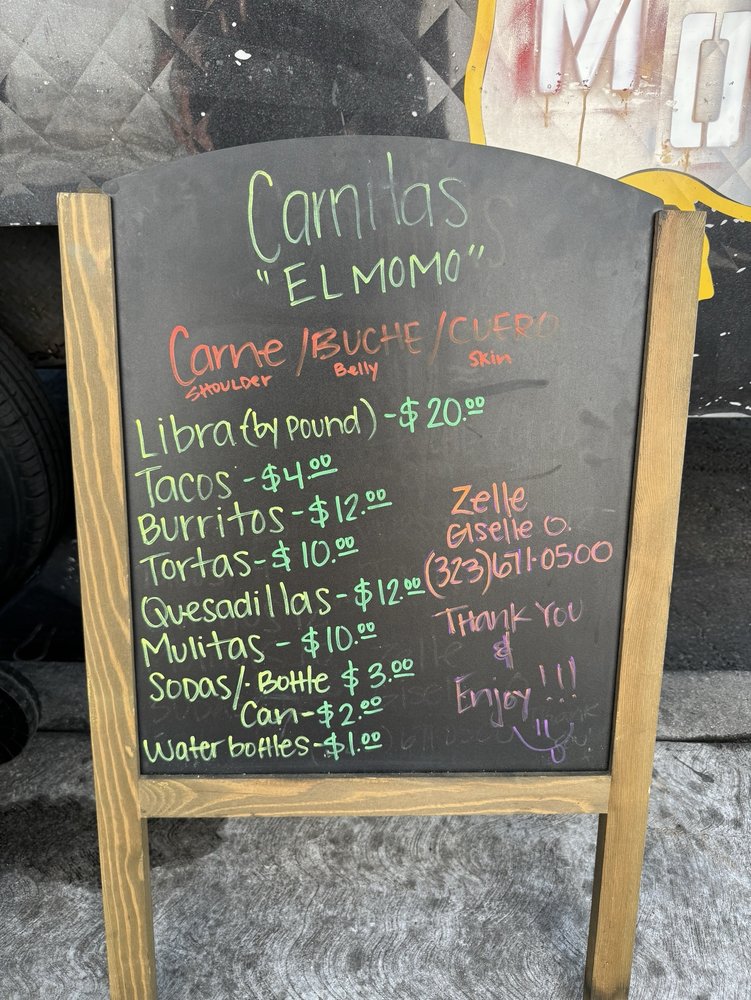 MO
Carnitas
"EL MOMO"
Carne / BUCHE / CUERO
SHOULDER Belly Skin
Libra (by pound) - $20.00
Tacos - $4.00
Burritos - $12.00
Tortas - $10.00
Quesadillas - $12.00
Mulitas - $10.00
SODAS/. Bottle $3.00
Can - $2.00
Water bottles - $1.00
Zelle
Giselle O.
(323)671-0500
THANK YOU
&
Enjoy!!!